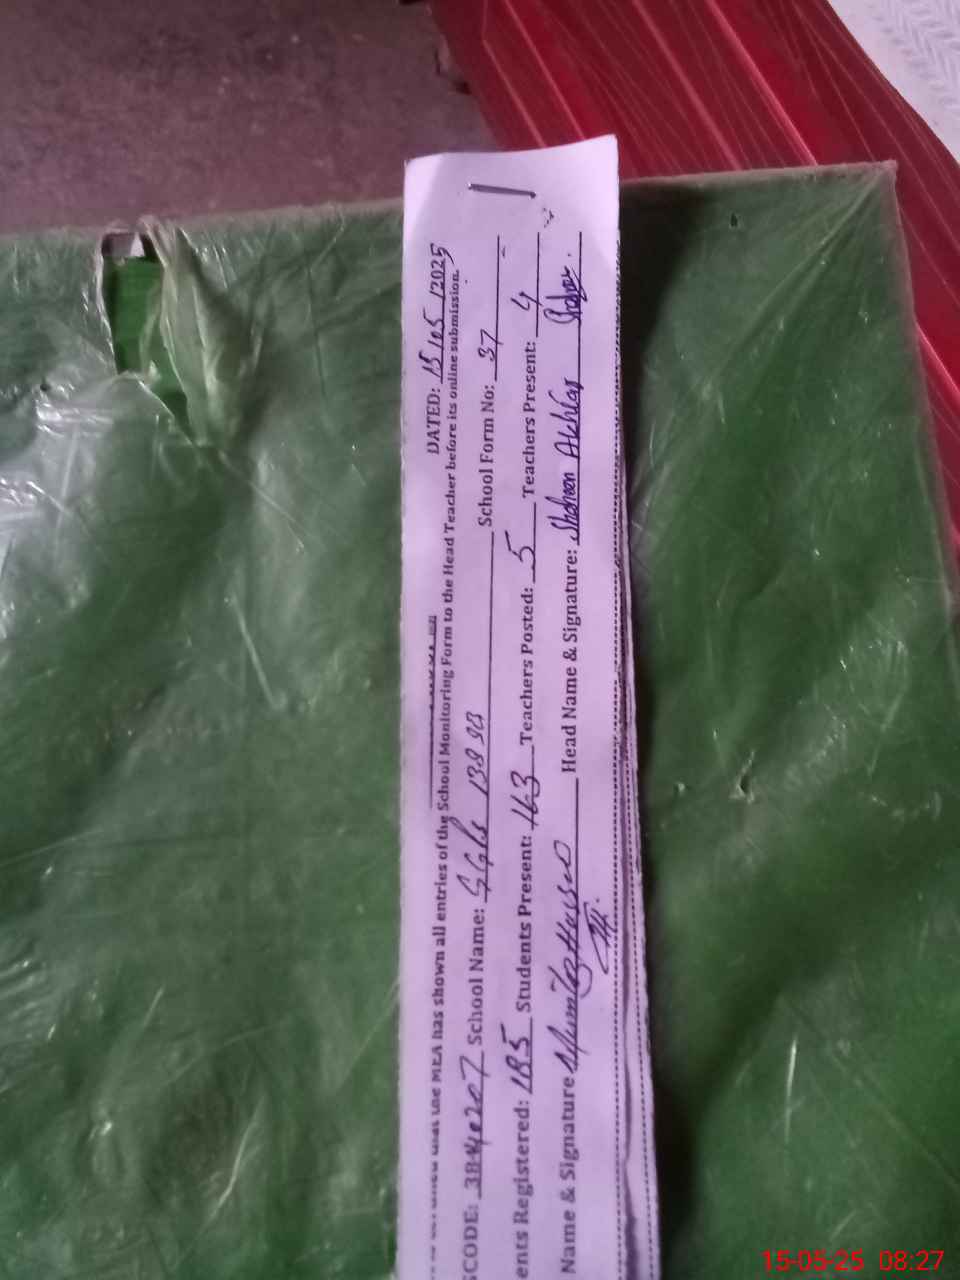 DATED: 15/05/2025
that the MEA has shown all entries of the School Monitoring Form to the Head Teacher before its online submission.
SCODE: 38440207 School Name: GGPS 139 SB School Form No: 37
ents Registered: 185 Students Present: 163 Teachers Posted: 5 Teachers Present: 4
Name & Signature Mumtaz Hussan Head Name & Signature: Shaheen Akhtar
15-05-25 08:27